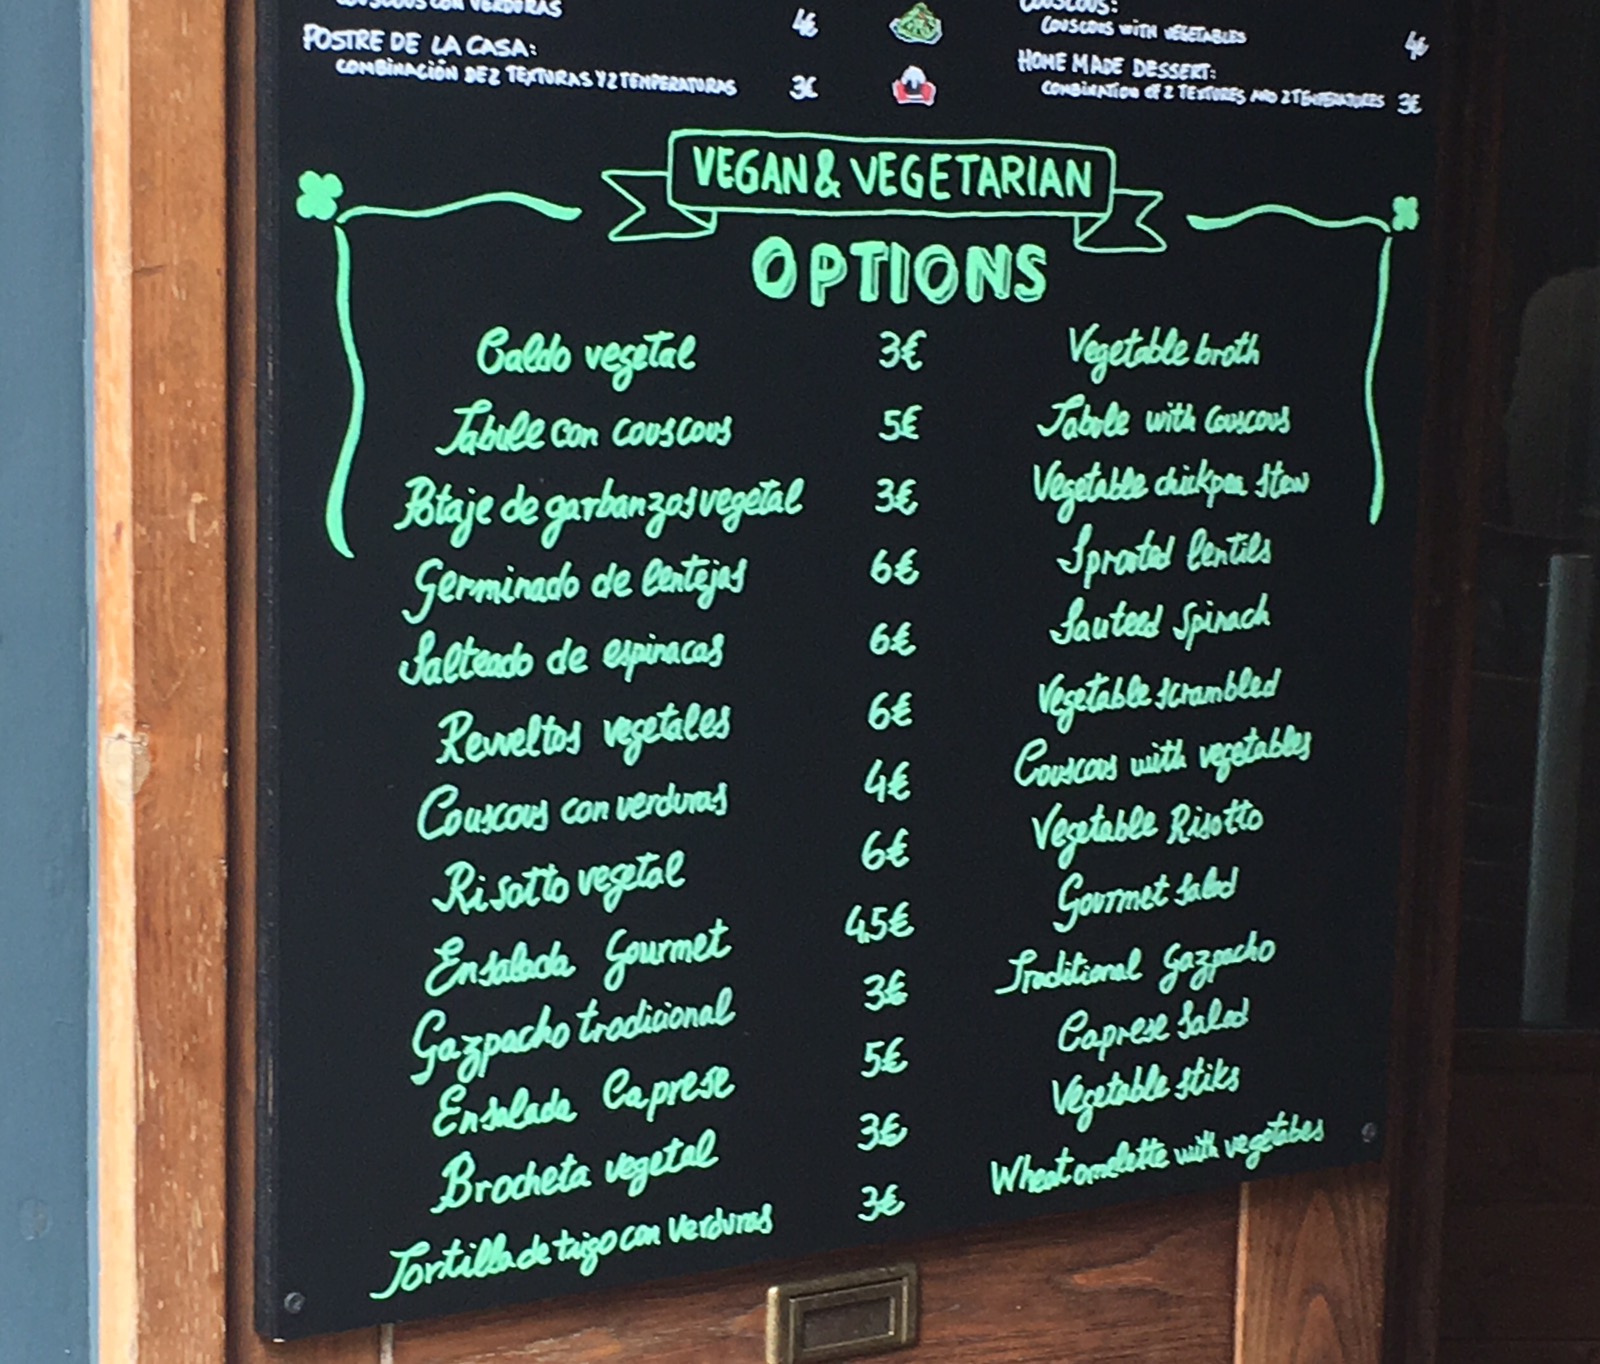 COUSCOUS CON VERDURAS 4€ COUSCOUS:
COUSCOUS WITH VEGETABLES 4€
POSTRE DE LA CASA: HOME MADE DESSERT:
COMBINACIÓN DE 2 TEXTURAS Y 2 TEMPERATURAS 3€ COMBINATION OF 2 TEXTURES AND 2 TEMPERATURES 3€
VEGAN & VEGETARIAN
OPTIONS
Caldo vegetal 3€ Vegetable broth
Tabule con couscous 5€ Tabule with couscous
Potaje de garbanzos vegetal 3€ Vegetable chickpea stew
Germinado de lentejas 6€ Sprouted lentils
Salteado de espinacas 6€ Sauteed Spinach
Revueltos vegetales 6€ Vegetable scrambled
Couscous con verduras 4€ Couscous with vegetables
Risotto vegetal 6€ Vegetable Risotto
Ensalada Gourmet 4,5€ Gourmet Salad
Gazpacho tradicional 3€ Traditional Gazpacho
Ensalada Caprese 5€ Caprese Salad
Brocheta vegetal 3€ Vegetable stiks
Tortilla de trigo con verduras 3€ Wheat omelette with vegetabes